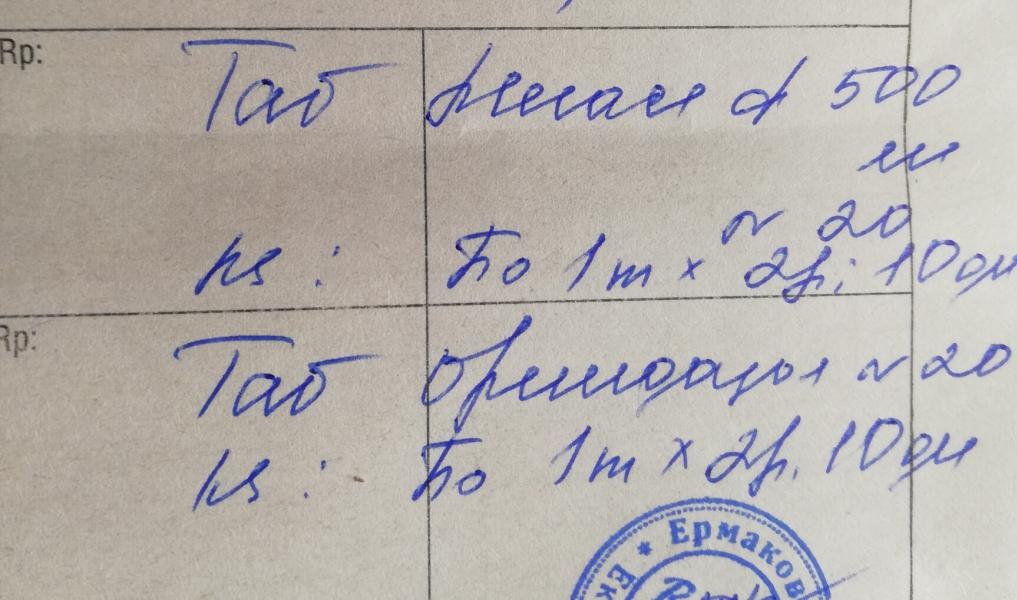 Rp: Таб 500
мг
N 20
DS: По 1т x 2р; 10 дн
Rp: Таб Орнидазол N 20
DS: По 1т x 2р. 10 дн
Ермаков